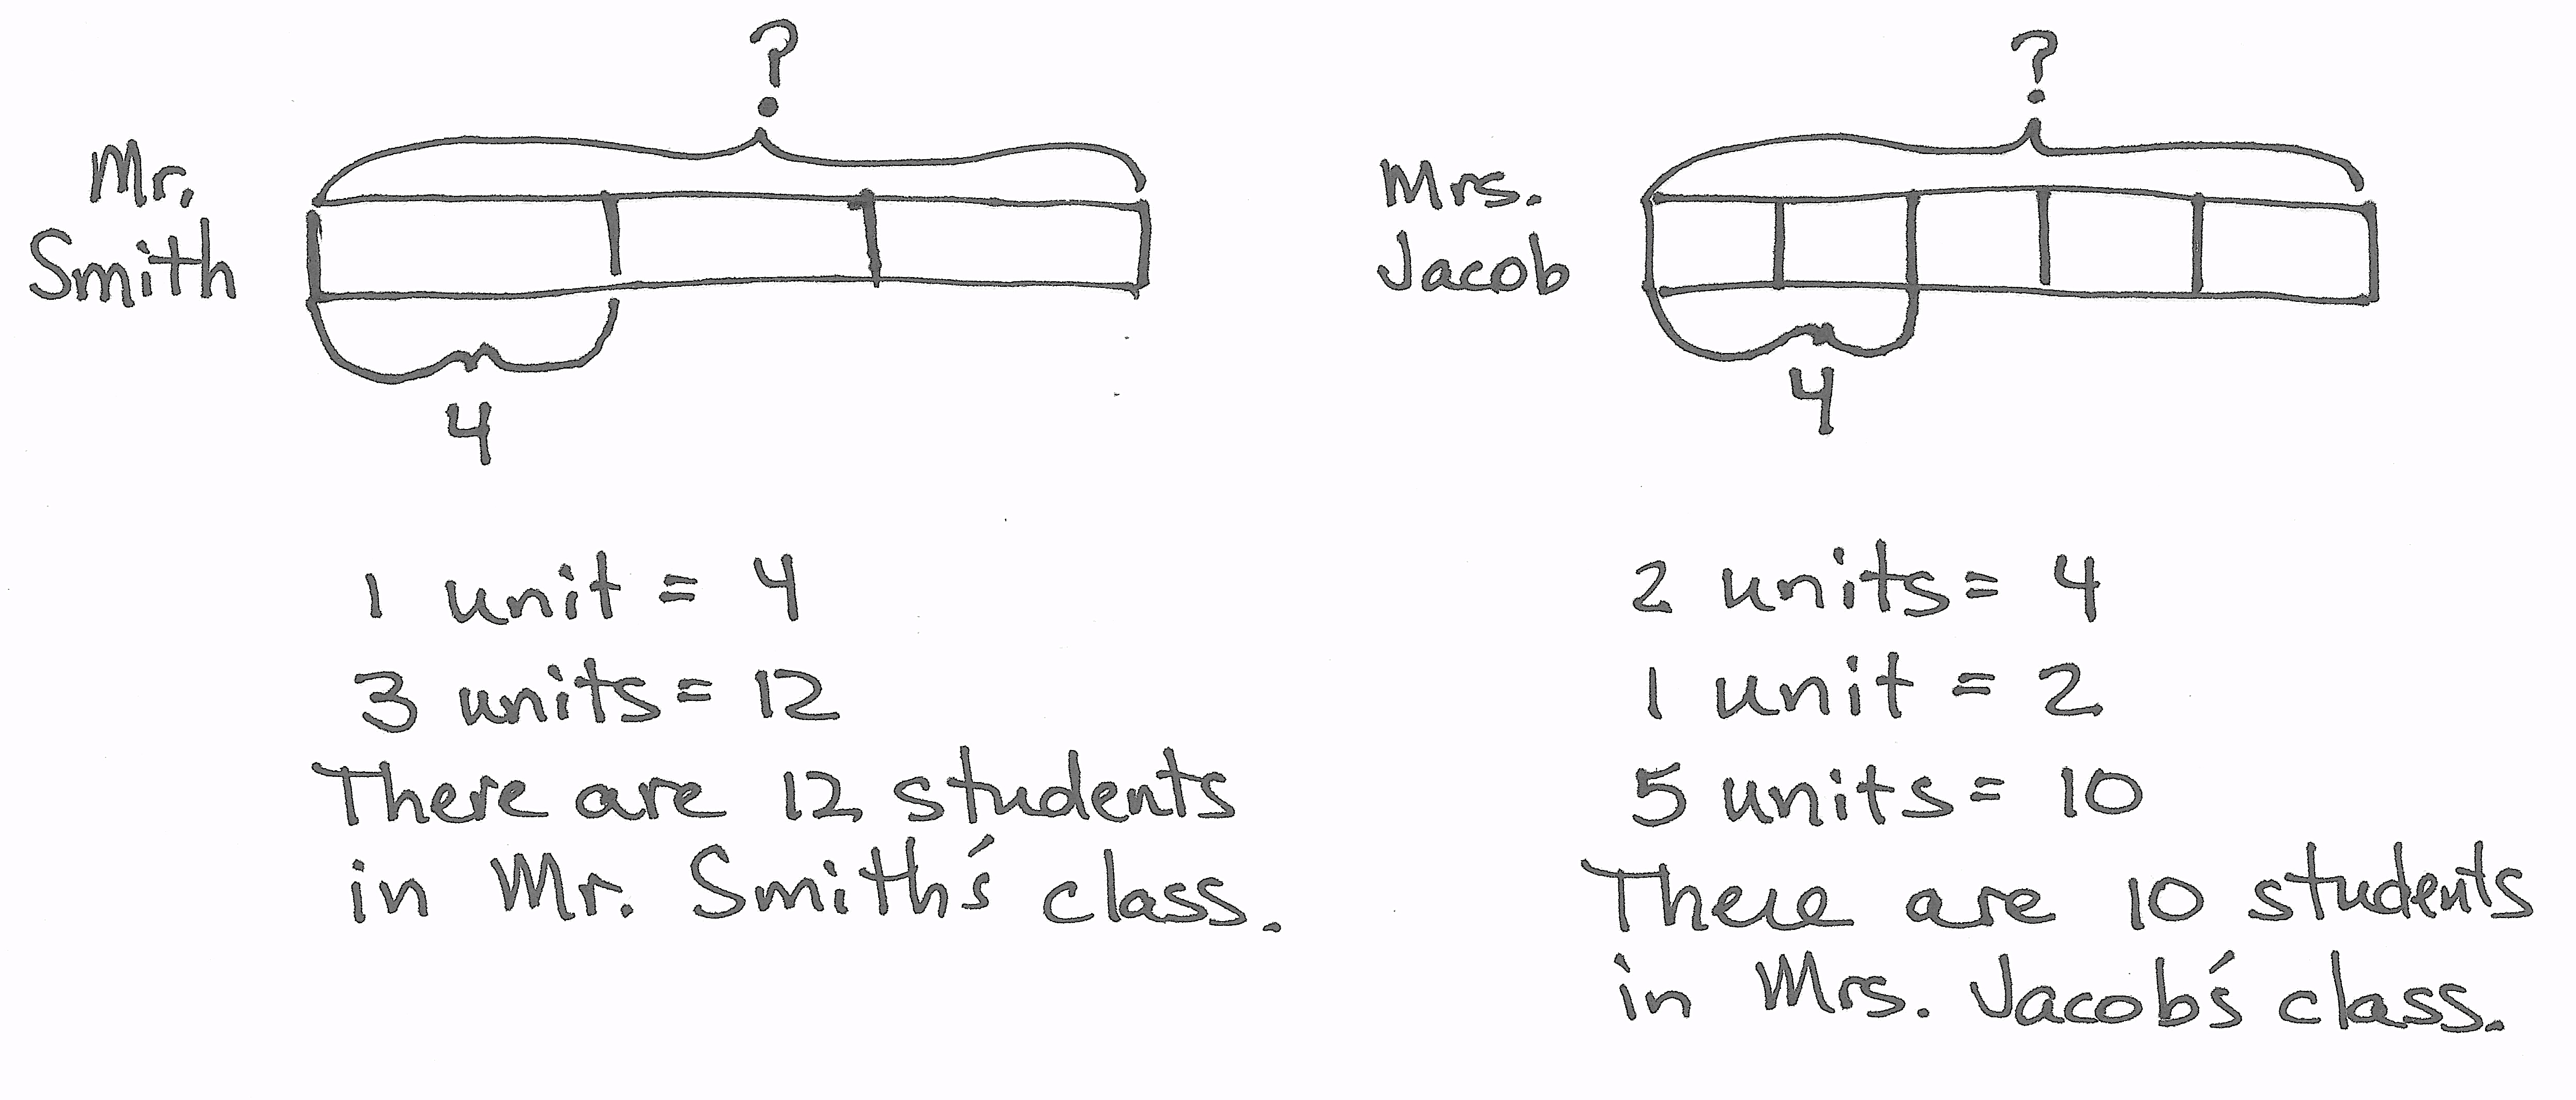 ?
Mr.
Smith
4
1 unit = 4
3 units = 12
There are 12 students
in Mr. Smith's class.
?
Mrs.
Jacob
4
2 units = 4
1 unit = 2
5 units = 10
There are 10 students
in Mrs. Jacob's class.